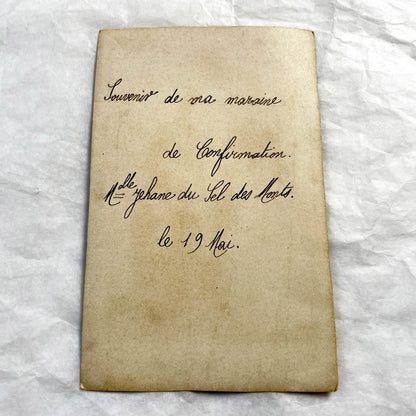 Souvenir de ma maraine
de Confirmation.
Mdlle Jehane du Sel des Monts.
le 19 Mai.